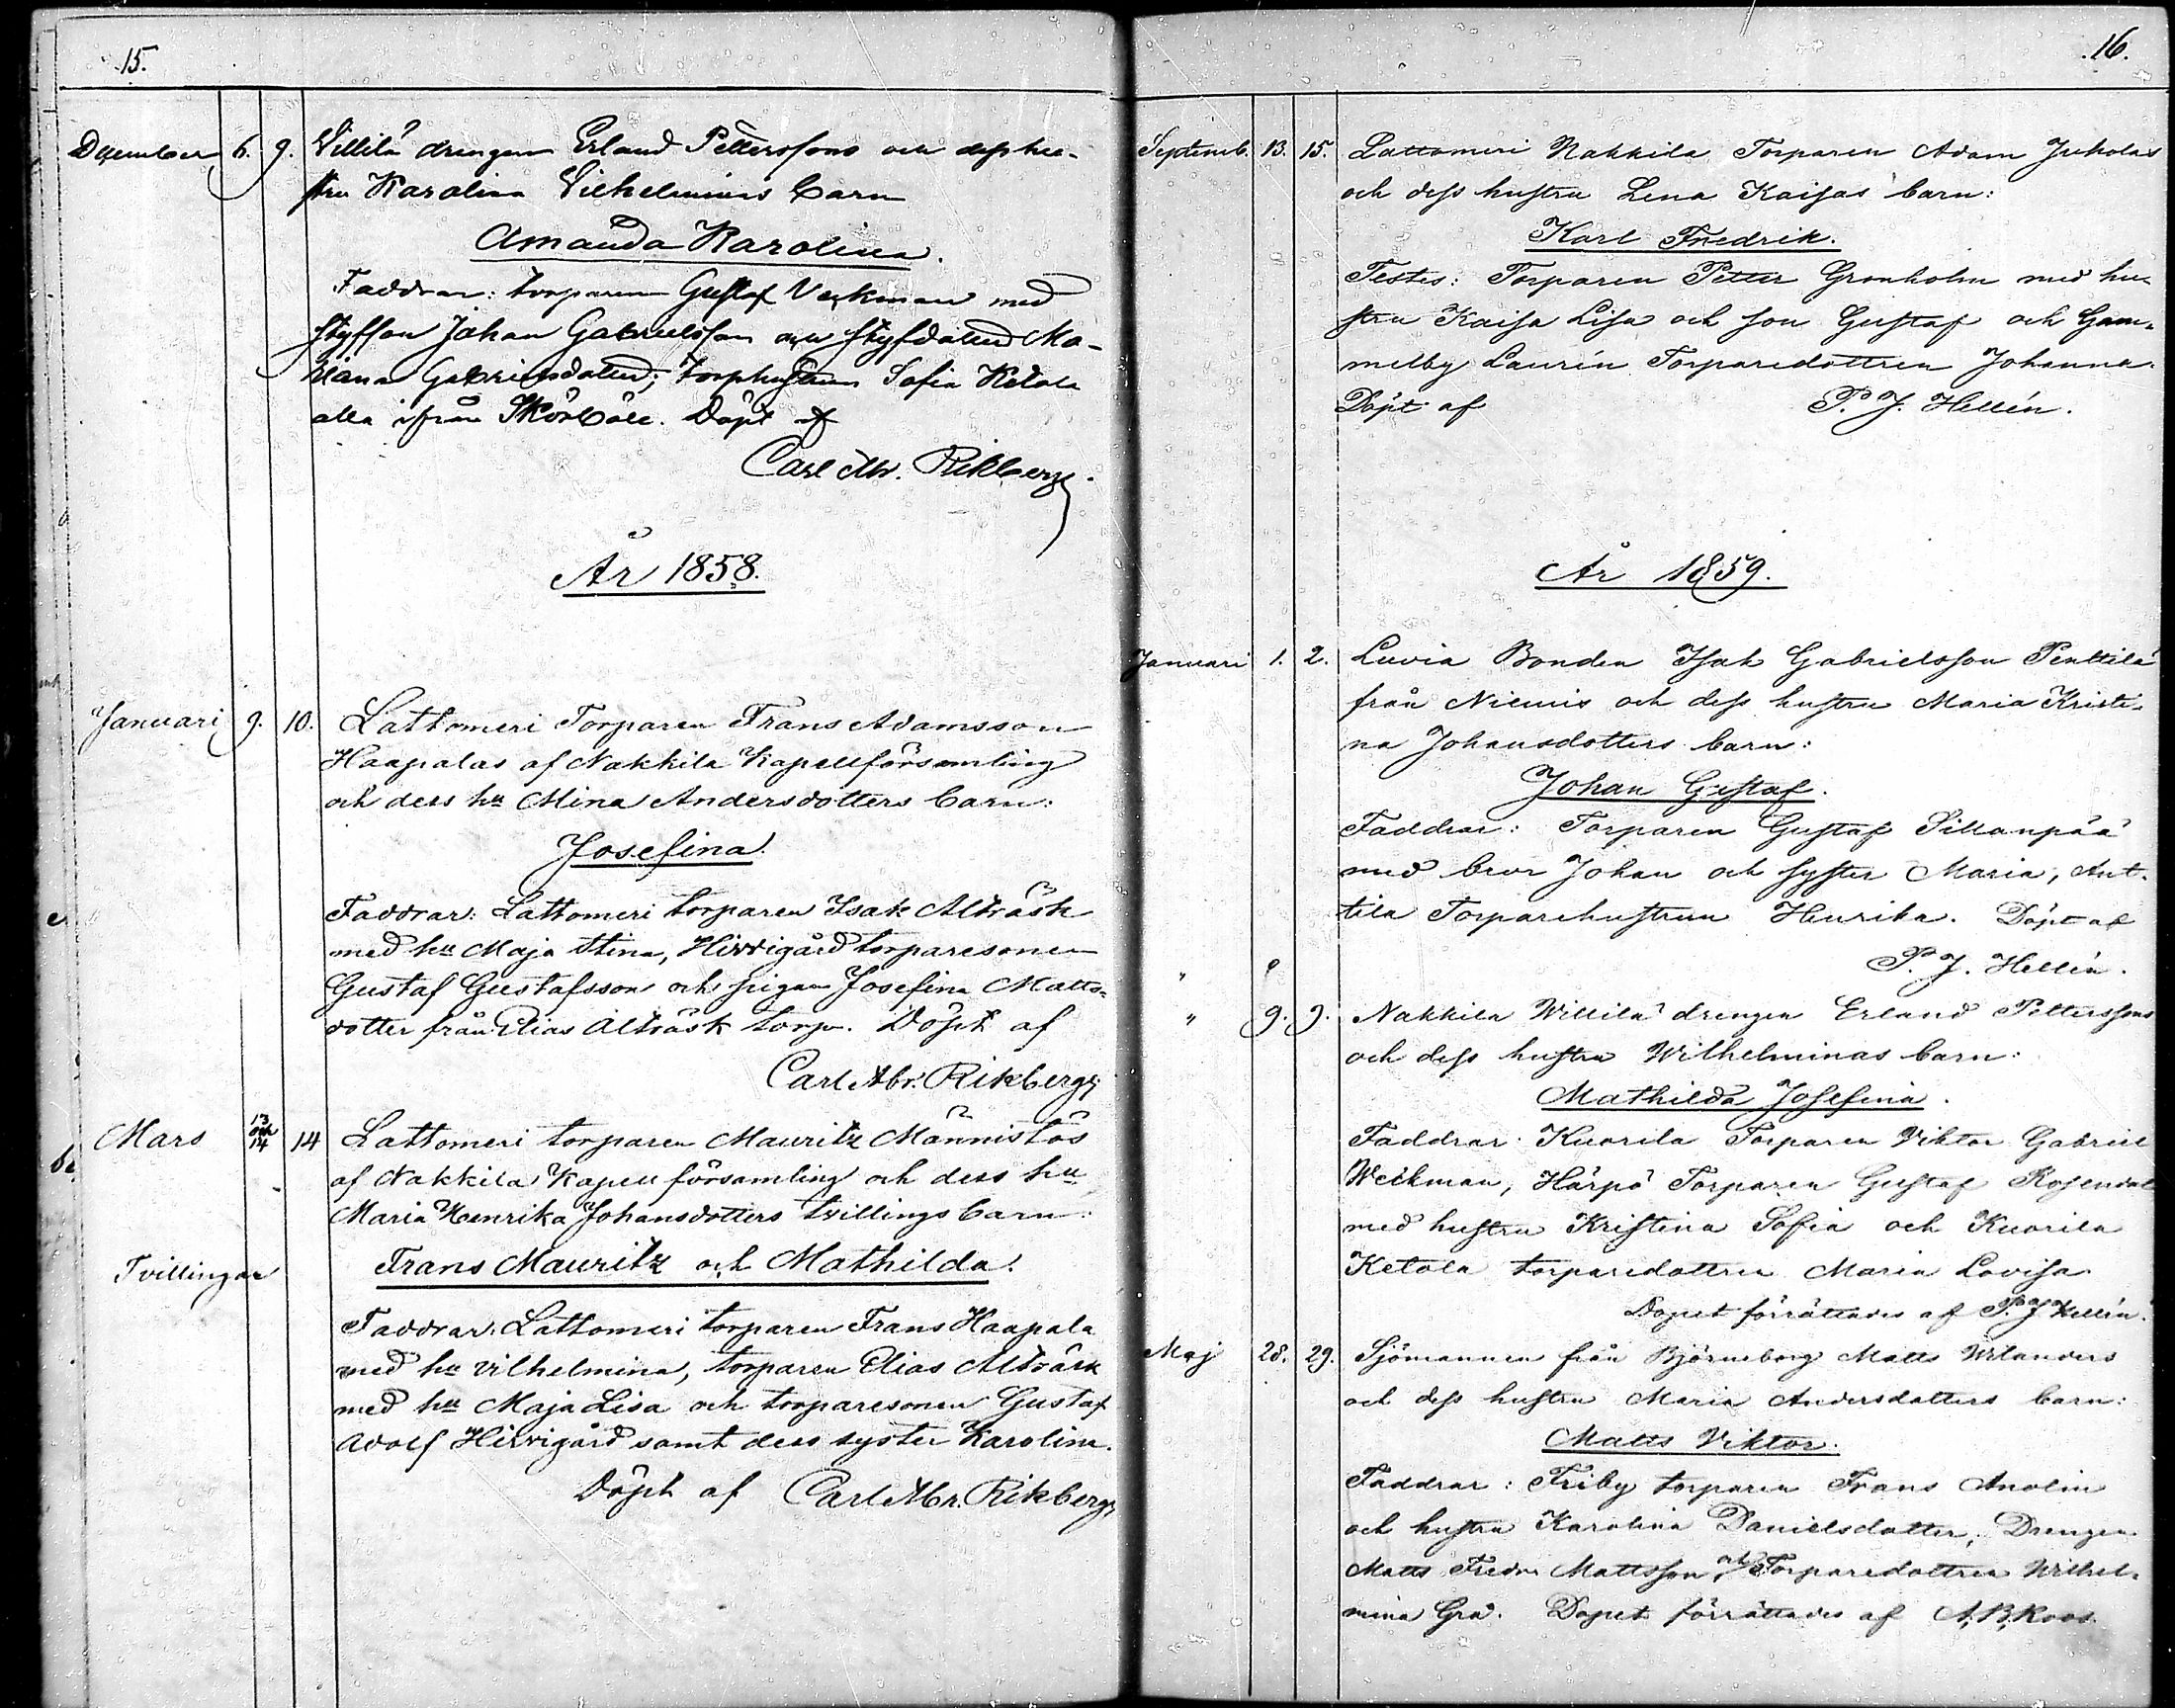 15.
December 6. 9. Villilä drengen Erland Petterssons och dess hu-
stru Karolina Vilhelminas barn
Amanda Karolina.
Faddrar: torparen Gustaf Veckman med
styfson Johan Gabrielsson och styfdotter Ma-
riana Gabrielsdotter; torphustrun Sofia Ketola
alla ifrån Skörböle. Döpt af
Carl Abr. Rikberg.
År 1858.
Januari 9. 10. Lattomeri Torparen Frans Adamsson
Haapalas af Nakkila Kapellförsamling
och dess hu Mina Andersdotters barn:
Josefina.
Faddrar: Lattomeri torparen Isak Alträsk
med hu Maja Stina, Hirvigård torparesonen
Gustaf Gustafsson och pigan Josefina Matts-
dotter från Elias Alträsk torp. Döpt af
Carl Abr. Rikberg.
Mars 13 och 14 14 Lattomeri torparen Mauritz Männistös
af Nakkila Kapellförsamling och dess hu
Maria Henrika Johansdotters tvillingsbarn:
Tvillingar Frans Mauritz och Mathilda.
Faddrar: Lattomeri torparen Frans Haapala
med hu Vilhelmina, torparen Elias Alträsk
med hu Maja Lisa och torparesonen Gustaf
Adolf Hirvigård samt dess syster Karolina.
Döpt af Carl Abr. Rikberg,
16.
Septemb. 13. 15. Lattomeri Nakkila Torparen Adam Juholas
och dess hustru Lena Kaisas barn:
Karl Fredrik.
Testes: Torparen Petter Gronholm med hu-
stru Kaisa Lisa och son Gustaf och Gam-
melby Laurén Torparedottren Johanna.
Döpt af P. J. Hellén.
År 1859.
Januari 1. 2. Luvia Bonden Isak Gabrielsson Penttilä
från Niemis och dess hustru Maria Kristi-
na Johansdotters barn:
Johan Gustaf.
Faddrar: Torparen Gustaf Sillanpää
med bror Johan och syster Maria, Ant-
tila Torparehustrun Henrika. Döpt af
P. J. Hellén.
" 9. 9. Nakkila Willilä drengen Erland Petterssons
och dess hustru Wilhelminas barn:
Mathilda Josefina.
Faddrar: Kuorila Torparen Viktor Gabriel
Weckman, Härpö Torparen Gustaf Rosendal
med hustru Kristina Sofia och Kuorila
Ketola torparedottren Maria Lovisa
Dopet förrättades af P. J. Hellén.
Maj 28. 29. Sjömannen från Björneborg Matts Wilanders
och dess hustru Maria Andersdotters barn:
Matts Viktor.
Faddrar: Friby torparen Frans Anolin
och hustru Karolina Danielsdotter, Drengen
Matts Fredr. Mattsson, och Torparedottren Wilhel-
mina Grå. Dopet förrättades af A. B. Roos.